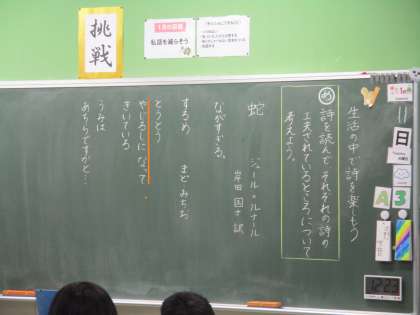 挑戦
私語を減らそう
生活の中で詩を楽しもう
め
詩を読んで、それぞれの詩の
工夫されているところについて
考えよう。
蛇
ジュール・ルナール
岸田 国士 訳
ながすぎる。
するめ
まど みちお
とうとう
やじるしに なって
きいている
うみは
あちらですかと…
11
日
A3
12:23